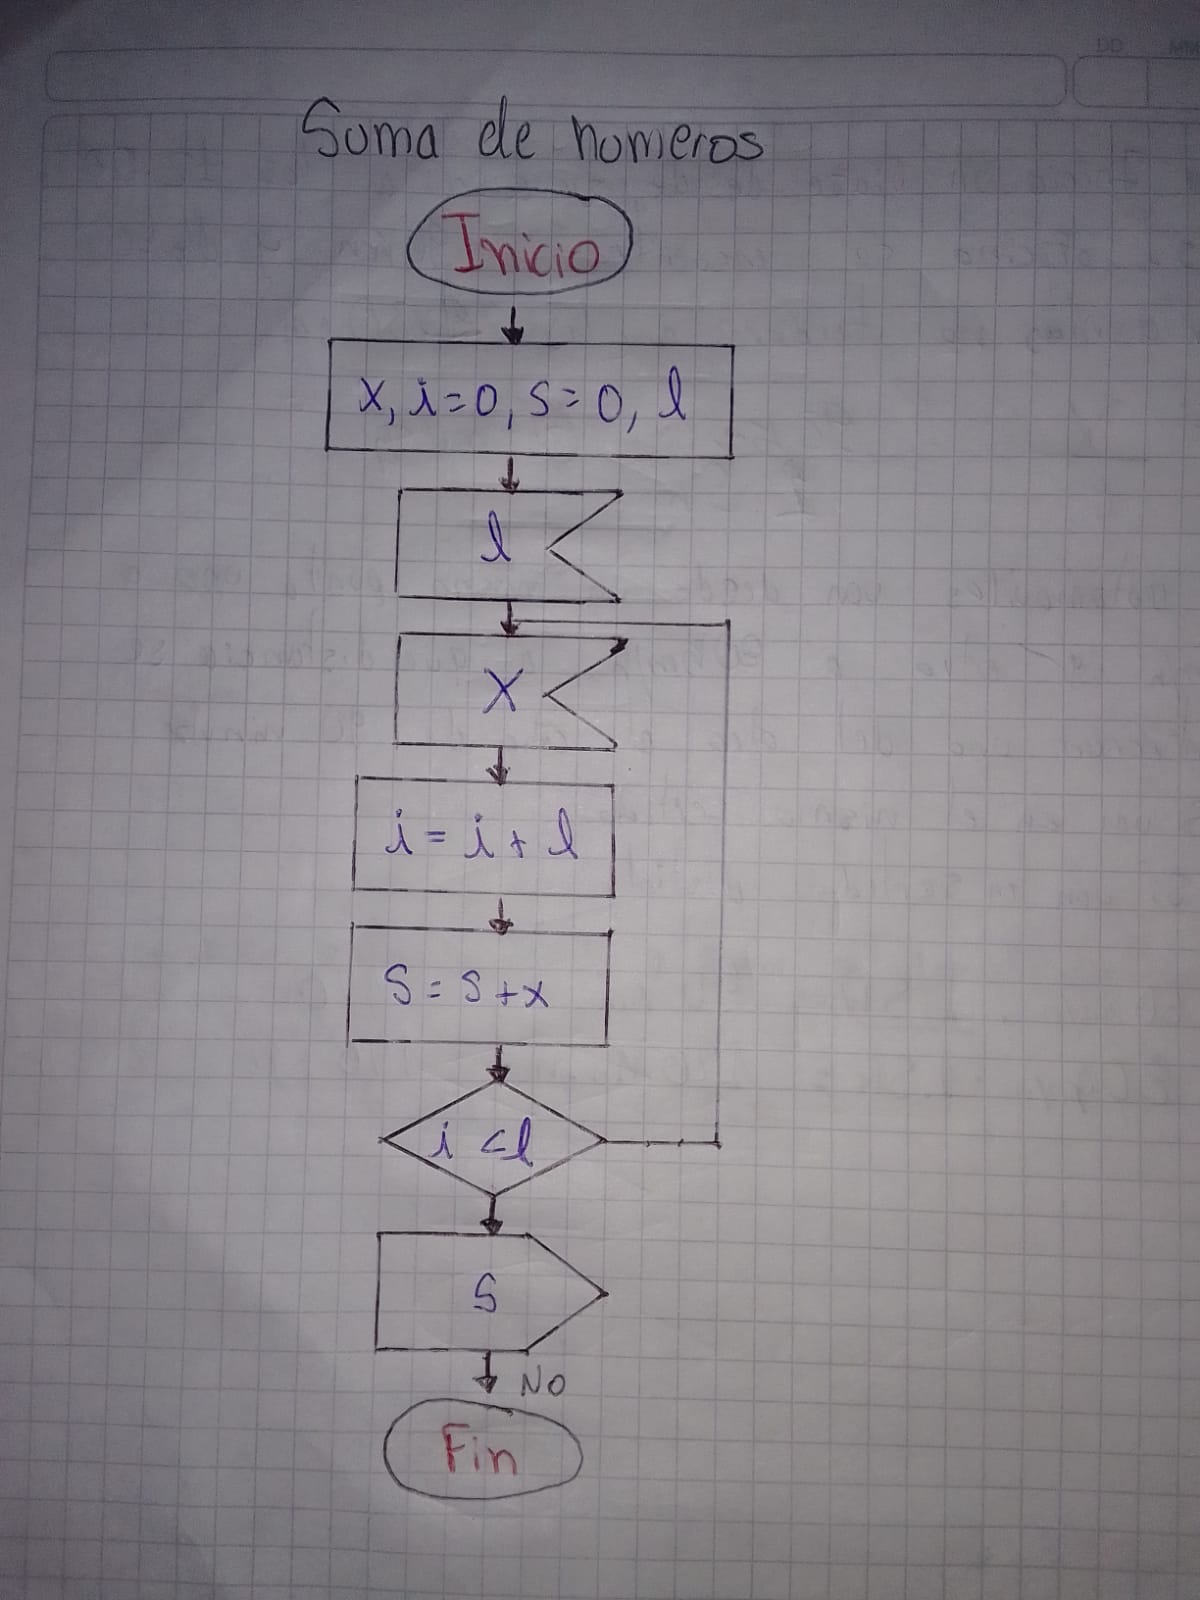 Suma de numeros
Inicio
x, i=0, s=0, l
l
X
i = i + l
S = S + x
i < l
S
NO
Fin